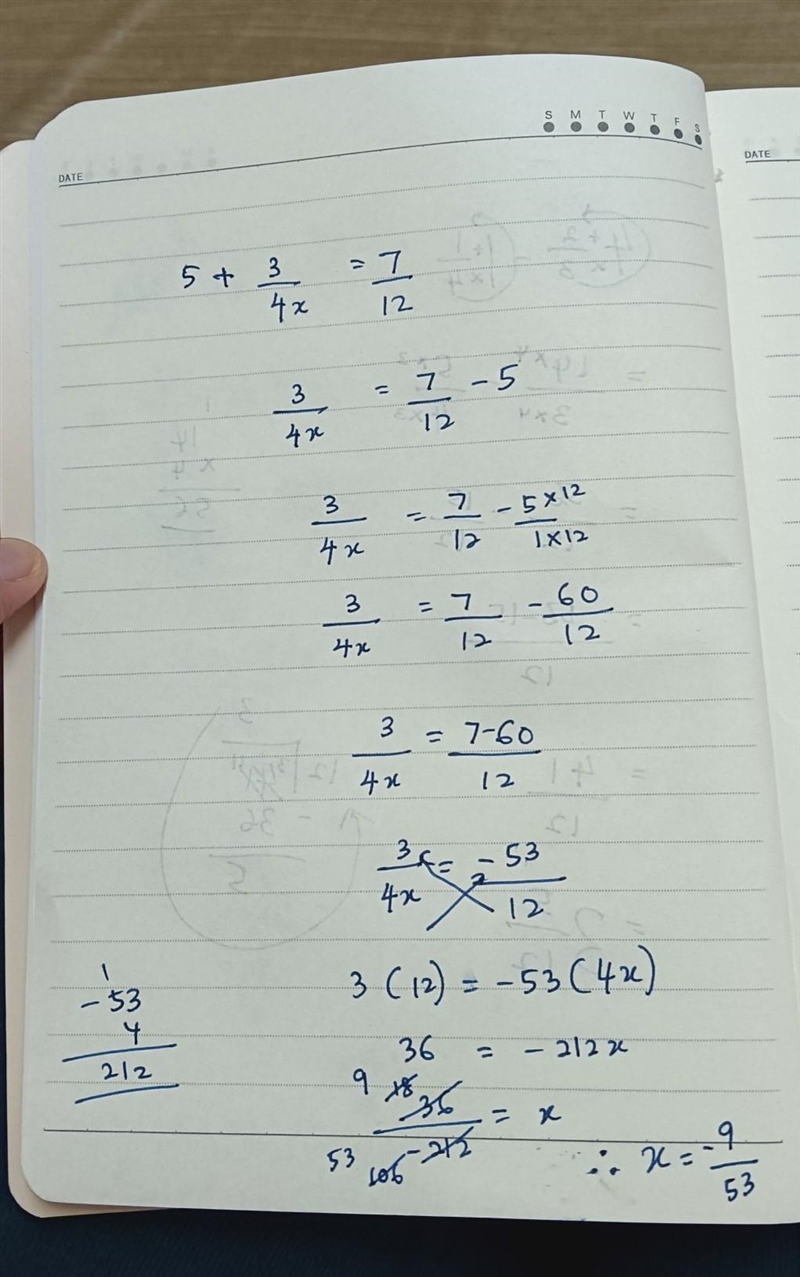 S M T W T F S
DATE
DATE
5 + 3/4x = 7/12
3/4x = 7/12 - 5
3/4x = 7/12 - 5×12/1×12
3/4x = 7/12 - 60/12
3/4x = 7-60/12
3/4x = -53/12
3 (12) = -53 (4x)
36 = -212x
9 18 36/-212 106 53 = x
∴ x = -9/53
1
-53
4
212